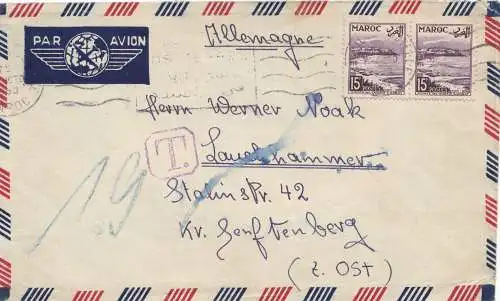 PAR AVION
Allemagne
MAROC المغرب
15F
POSTES
MAROC المغرب
15F
POSTES
Herrn Werner Noak
T.
Lauchhammer
Stalinstr. 42
Kr. Senftenberg
(z. Ost)
19